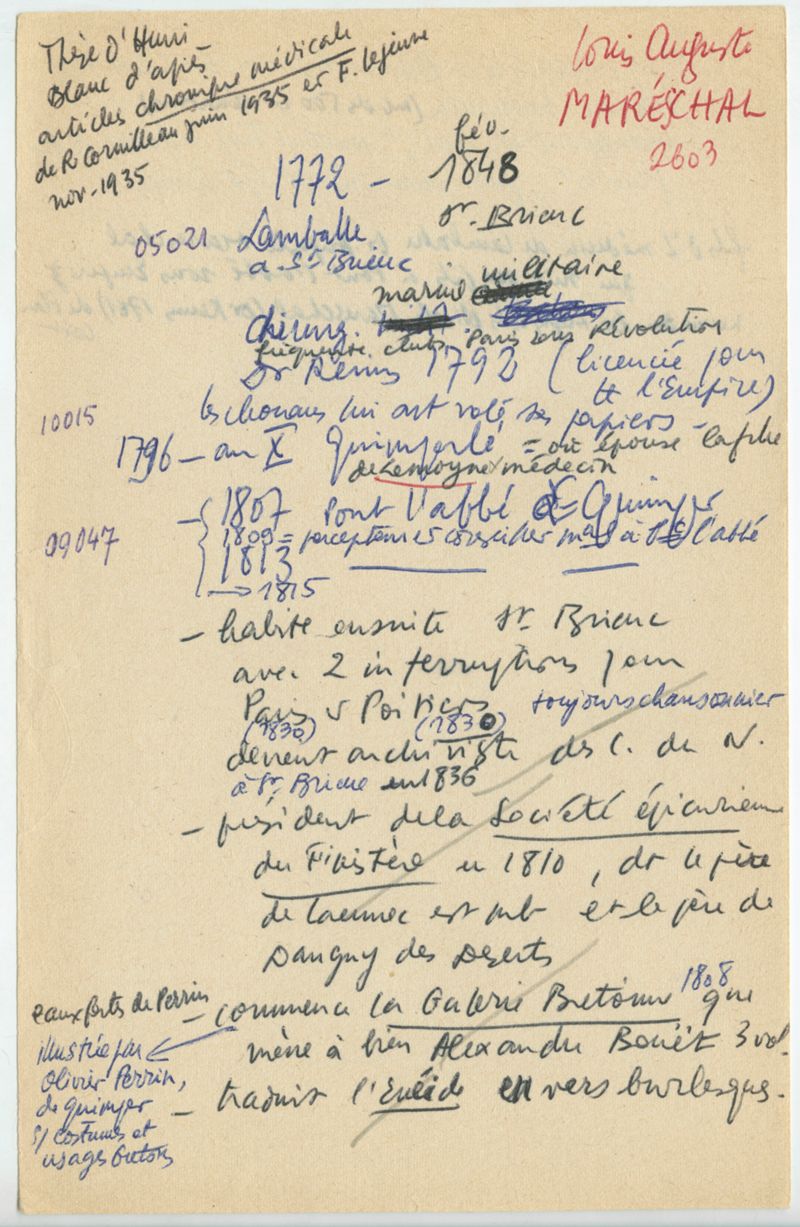 Thèse d'Henri
Blanc d'après
articles chronique médicale
de R. Cornilleau juin 1935 et F. Lejeune
nov-1935
Louis Auguste
MARÉSCHAL
2603
1772 - fév. 1848
St. Brieuc
05021 Lamballe
a St Brieuc
marine militaire
chirurg.
fréquente clubs Paris sous Révolution
Dr Reims 1792 (licencié pour
tt l'Empire)
10015
les chouans lui ont volé ses papiers -
1796 - an X Quimperlé = où épouse la fille
de Lemoyne médecin
- 1807 Pont l'abbé Quimper
09047
1809 = percepteur et conseiller mal à Pt l'abbé
1813
→ 1815
- habite ensuite St. Brieuc
avec 2 interruptions pour
Paris & Poitiers toujours chansonnier
(1830) (1830)
devient archiviste des C. du N.
à St. Brieuc en 1836
- président de la Société épicurienne
du Finistère en 1810, dt le père
de Laennec est mb et le père de
Danguy des Déserts
- commence la Galerie Bretonne 1808 que
mène à bien Alexandre Bouët 3 vol.
eaux fortes de Perrin
illustrée par
Olivier Perrin,
de Quimper
s/ costumes et
usages bretons
- traduit l'Enéide en vers burlesques.